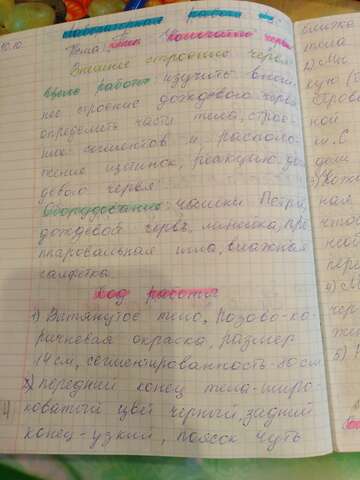 10.10. Лабораторная работа
Тема: Тип Кольчатые черви
Внешнее строение червя
Цель работы: изучить внеш-
нее строение дождевого червя
определить части тела, строе-
ние сегментов и располо-
жение щетинок, реакцию до
девого червя
Оборудование: чашки Петри,
дождевой червь, линейка, пре
паровальная игла, влажная
салфетка.
Ход работы
1) Вытянутое тело, Розово-ко-
ричневая окраска, размер
14 см, сегментированность-80 см
2) передний конец тела-широ-
коватый цвет черный, задний
конец-узкий, поясок чуть